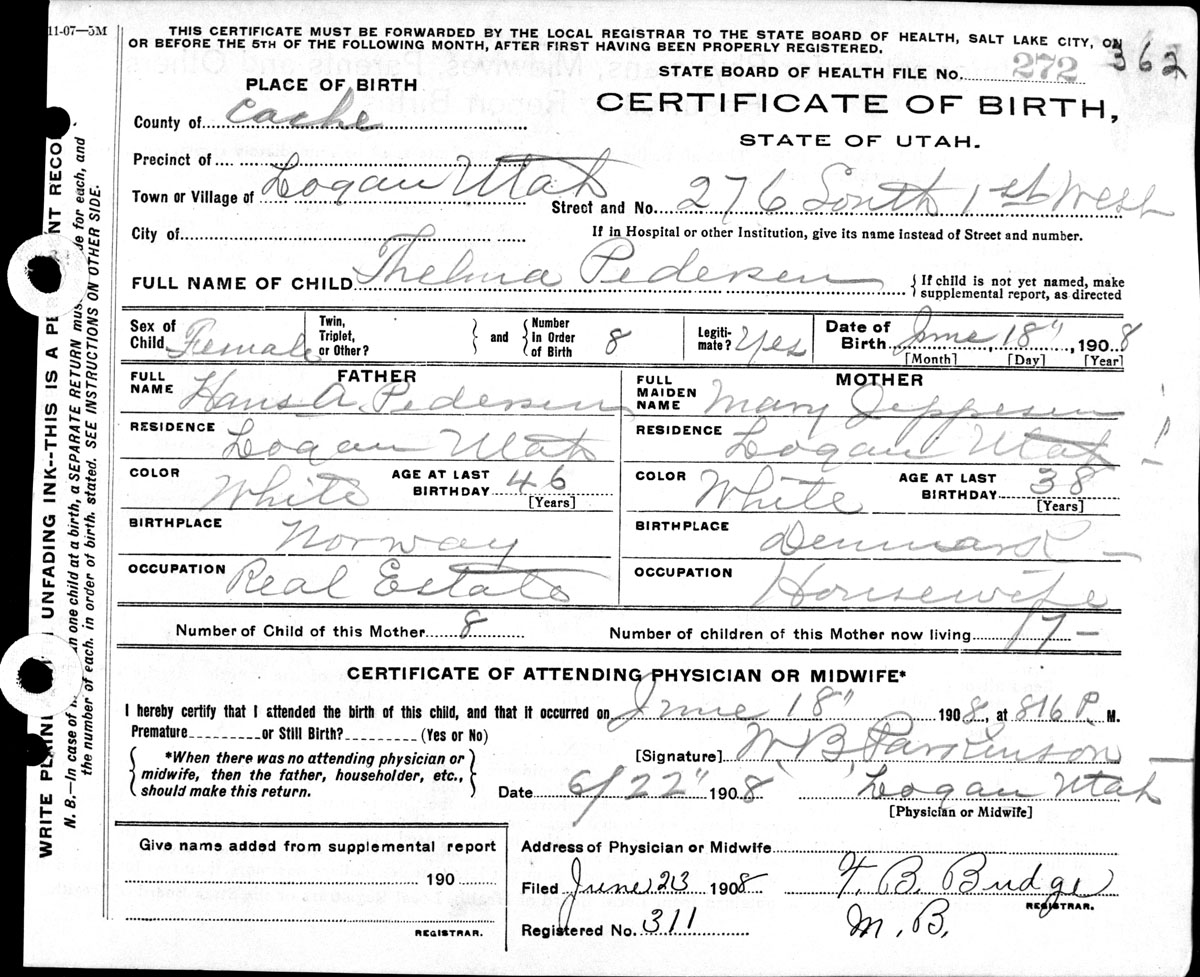 11-07—5M
THIS CERTIFICATE MUST BE FORWARDED BY THE LOCAL REGISTRAR TO THE STATE BOARD OF HEALTH, SALT LAKE CITY, ON
OR BEFORE THE 5TH OF THE FOLLOWING MONTH, AFTER FIRST HAVING BEEN PROPERLY REGISTERED.
STATE BOARD OF HEALTH FILE No. 272 362
PLACE OF BIRTH
CERTIFICATE OF BIRTH,
STATE OF UTAH.
County of Cache
Precinct of
Town or Village of Logan Utah
Street and No. 276 South 1st West
City of
If in Hospital or other Institution, give its name instead of Street and number.
FULL NAME OF CHILD Thelma Pedersen
{If child is not yet named, make
supplemental report, as directed
Sex of Child Female
Twin, Triplet, or Other?
and
Number In Order of Birth 8
Legiti-mate? Yes
Date of Birth June 18", 1908
[Month] [Day] [Year]
FATHER
FULL NAME Hans A. Pedersen
RESIDENCE Logan Utah
COLOR White
AGE AT LAST BIRTHDAY 46
[Years]
BIRTHPLACE Norway
OCCUPATION Real Estate
MOTHER
FULL MAIDEN NAME Mary Jeppesen
RESIDENCE Logan Utah
COLOR White
AGE AT LAST BIRTHDAY 38
[Years]
BIRTHPLACE Denmark
OCCUPATION Housewife
Number of Child of this Mother 8
Number of children of this Mother now living 7
CERTIFICATE OF ATTENDING PHYSICIAN OR MIDWIFE*
I hereby certify that I attended the birth of this child, and that it occurred on June 18" 1908, at 816 P. M.
Premature or Still Birth? (Yes or No)
*When there was no attending physician or
midwife, then the father, householder, etc.,
should make this return.
[Signature] W. B. Parkinson
Date 6/22" 1908 Logan Utah
[Physician or Midwife]
Give name added from supplemental report
190
REGISTRAR.
Address of Physician or Midwife
Filed June 23 1908 F. B. Budge
REGISTRAR.
Registered No. 311 M. B.
WRITE PLAIN UNFADING INK--THIS IS A PE NT RECO
N. B.—In case of n one child at a birth, a SEPARATE RETURN mus de for each, and
the number of each, in order of birth, stated. SEE INSTRUCTIONS ON OTHER SIDE.